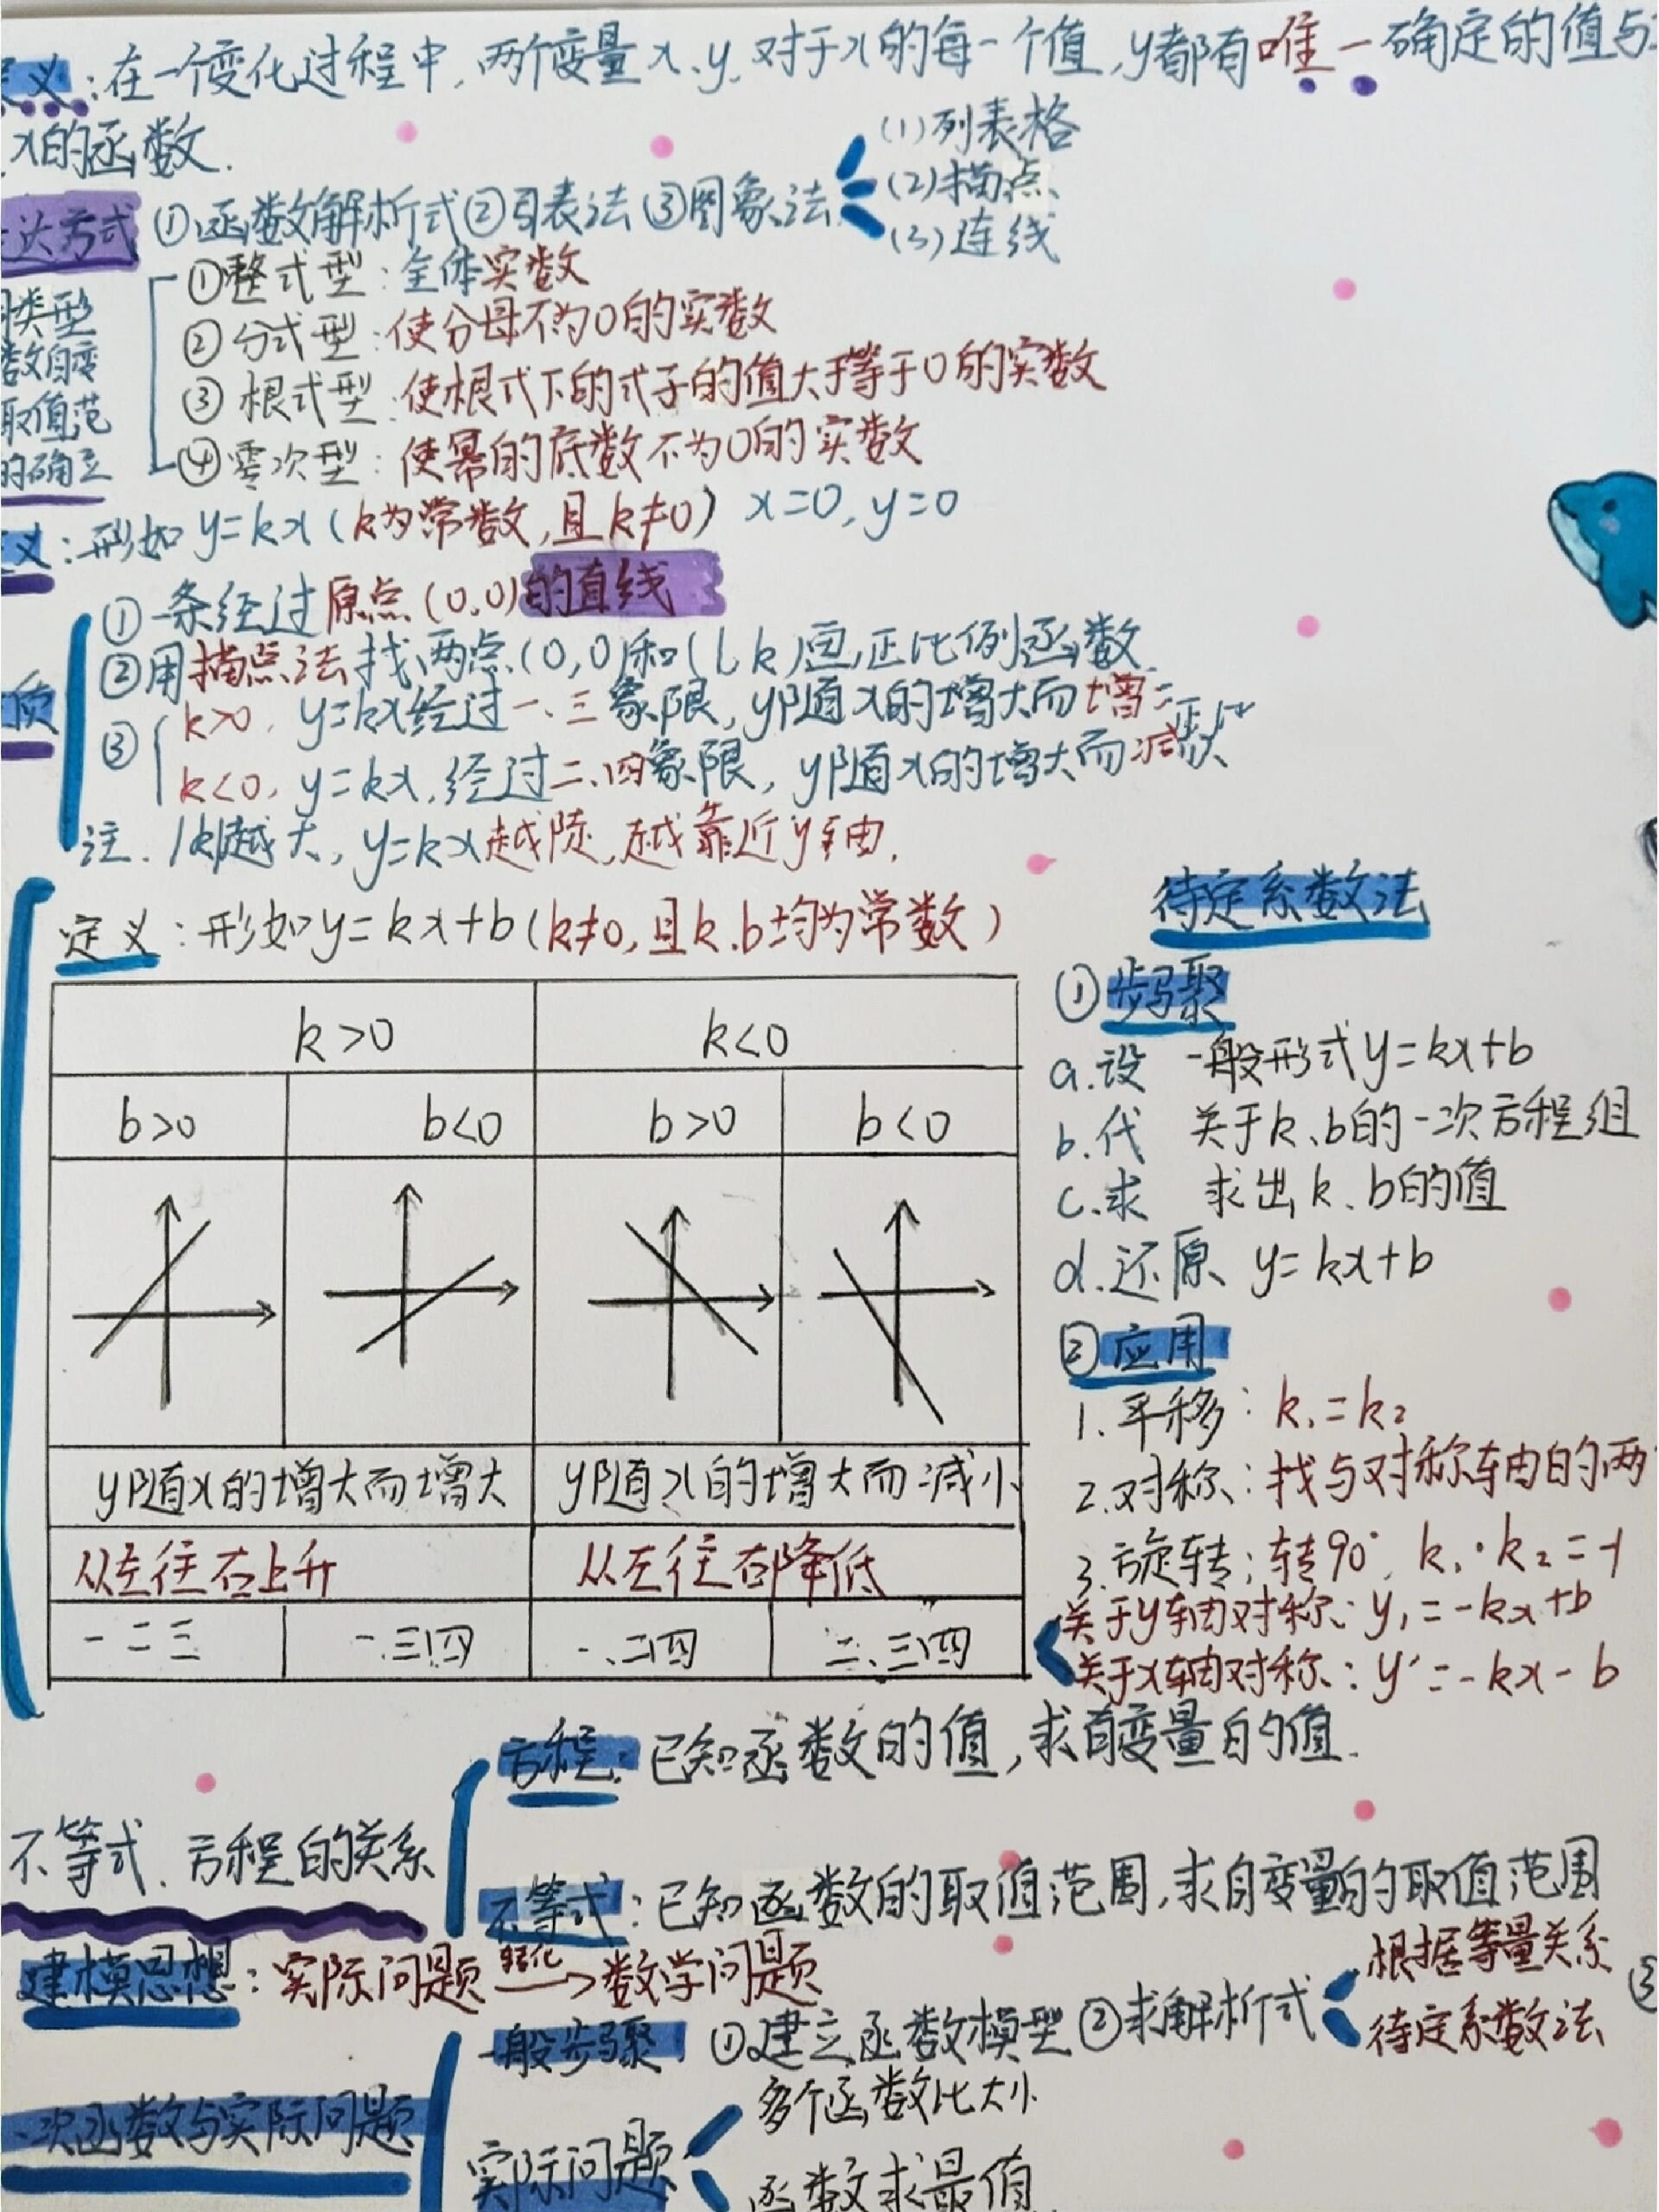 义：在一个变化过程中，两个变量x、y，对于x的每一个值，y都有唯一确定的值与
x的函数．
达方式 ①函数解析式②列表法③图象法
(1)列表格
(2)描点
(3)连线
类型
数自变
取值范
的确立
①整式型：全体实数
②分式型：使分母不为0的实数
③根式型：使根式下的式子的值大于等于0的实数
④零次型：使幂的底数不为0的实数
义：形如y=kx(k为常数，且k≠0) x=0，y=0
质
①一条经过原点(0,0)的直线
②用描点法找两点(0,0)和(1,k)画正比例函数．
③
k>0，y=kx经过一、三象限，y随x的增大而增
k<0，y=kx，经过二、四象限，y随x的增大而减
注．|k|越大，y=kx越陡，越靠近y轴．
定义：形如y=kx+b(k≠0，且k、b均为常数)
k>0 k<0
b>0 b<0 b>0 b<0
y随x的增大而增大 y随x的增大而减小
从左往右上升 从左往右降低
一二三 一、三四 一、二四 二、三四
待定系数法
①步骤
a.设 一般形式y=kx+b
b.代 关于k、b的一次方程组
c.求 求出k、b的值
d.还原 y=kx+b
②应用
1.平移：k₁=k₂
2.对称：找与对称轴的两
3.旋转：转90° k₁·k₂=-1
关于y轴对称：y₁=-kx+b
关于x轴对称：y'=-kx-b
不等式、方程的关系
方程：已知函数的值，求自变量的值．
不等式：已知函数的取值范围，求自变量的取值范围
建模思想：实际问题→数学问题
一次函数与实际问题
一般步骤：①建立函数模型②求解析式
根据等量关系
待定系数法
③
实际问题
多个函数比大小
函数求最值